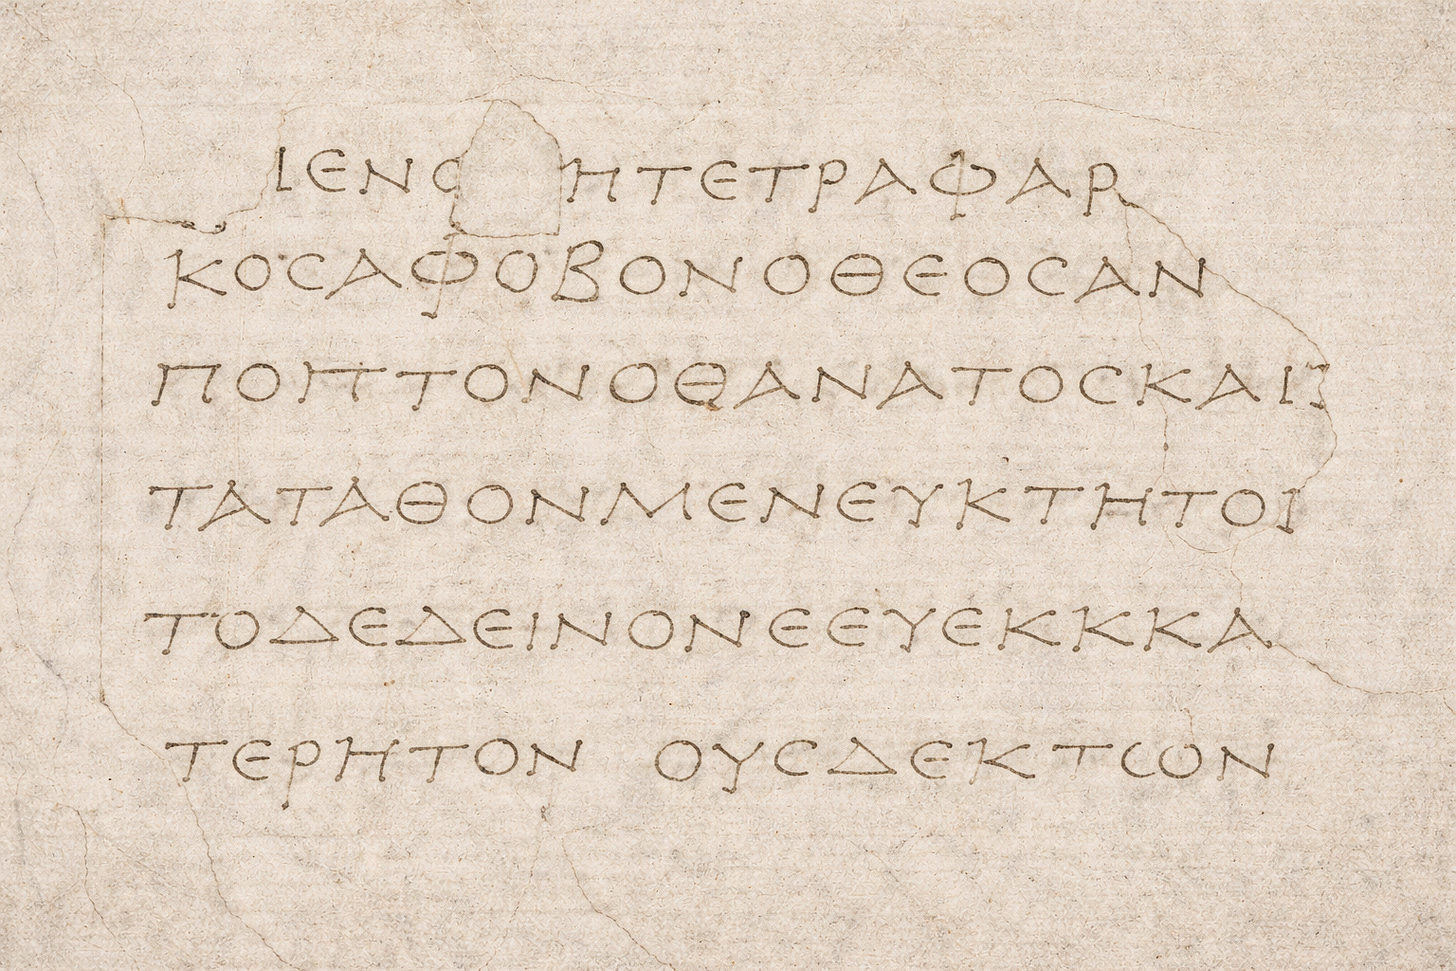 ΙΕΝϹ ΗΤΕΤΡΑΦΑΡ
ΚΟϹΑΦΟΒΟΝΟΘΕΟϹΑΝ
ΠΟΠΤΟΝΟΘΑΝΑΤΟϹΚΑΙ
ΤΑΤΑΘΟΝΜΕΝΕΥΚΤΗΤΟΙ
ΤΟΔΕΔΕΙΝΟΝΕΕΥΕΚΚΚΑ
ΤΕΡΗΤΟΝ ΟΥϹΔΕΚΤωΝ